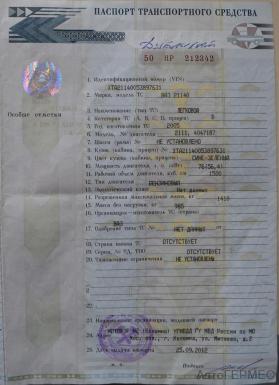 ПАСПОРТ ТРАНСПОРТНОГО СРЕДСТВА
50 НР 212342
1. Идентификационный номер (VIN)
XTA21140053897631
2. Марка, модель ТС ВАЗ 21140
Особые отметки
3. Наименование (тип ТС) ЛЕГКОВОЙ
4. Категория ТС (A, B, C, D, прицеп) B
5. Год изготовления ТС 2005
6. Модель, № двигателя 2111, 4047187
7. Шасси (рама) № НЕ УСТАНОВЛЕНО
8. Кузов (кабина, прицеп) № XTA21140053897631
9. Цвет кузова (кабины, прицепа) СИНЕ-ЗЕЛЕНЫЙ
10. Мощность двигателя, л.с.
11. Рабочий объем двигателя, куб. см 1500
12. Тип двигателя БЕНЗИНОВЫЙ
13. Экологический класс Нет данных
14. Разрешенная максимальная масса, кг 1410
15. Масса без нагрузки, кг 985
16. Организация-изготовитель ТС (страна)
ВАЗ
17. Одобрение типа ТС № НЕТ ДАННЫХ
18. Страна вывоза ТС ОТСУТСТВУЕТ
19. Серия, № ТД, ТПО ОТСУТСТВУЕТ
20. Таможенные ограничения НЕ УСТАНОВЛЕНЫ
23. Наименование организации, выдавшей паспорт
МРЭО (Коломна) УГИБДД ГУ МВД России по МО
24. Адрес Моск. обл., г. Коломна, ул.
25. Дата выдачи паспорта 25.09.2012
М. П.
АвтоГЕРМЕС